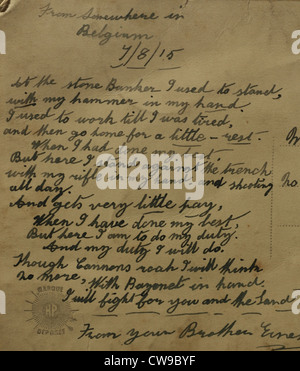 From Somewhere in
Belgium
7/8/15
At the stone Banker I used to stand,
with my hammer in my hand.
I used to work till I was tired,
and then go home for a little - rest.
When I had done my best
But here I stand against the trench
with my rifle in my hand and shooting
all day.
And gets very little pay,
When I have done my best,
But here I am to do my duty.
And my duty I will do.
Though Cannons roah I will think
no more, With Bayonet in hand
I will fight for you and the Land
From your Brother
MARQUE
DEPOSEE
alamy
Image ID: CW9BYF
www.alamy.com